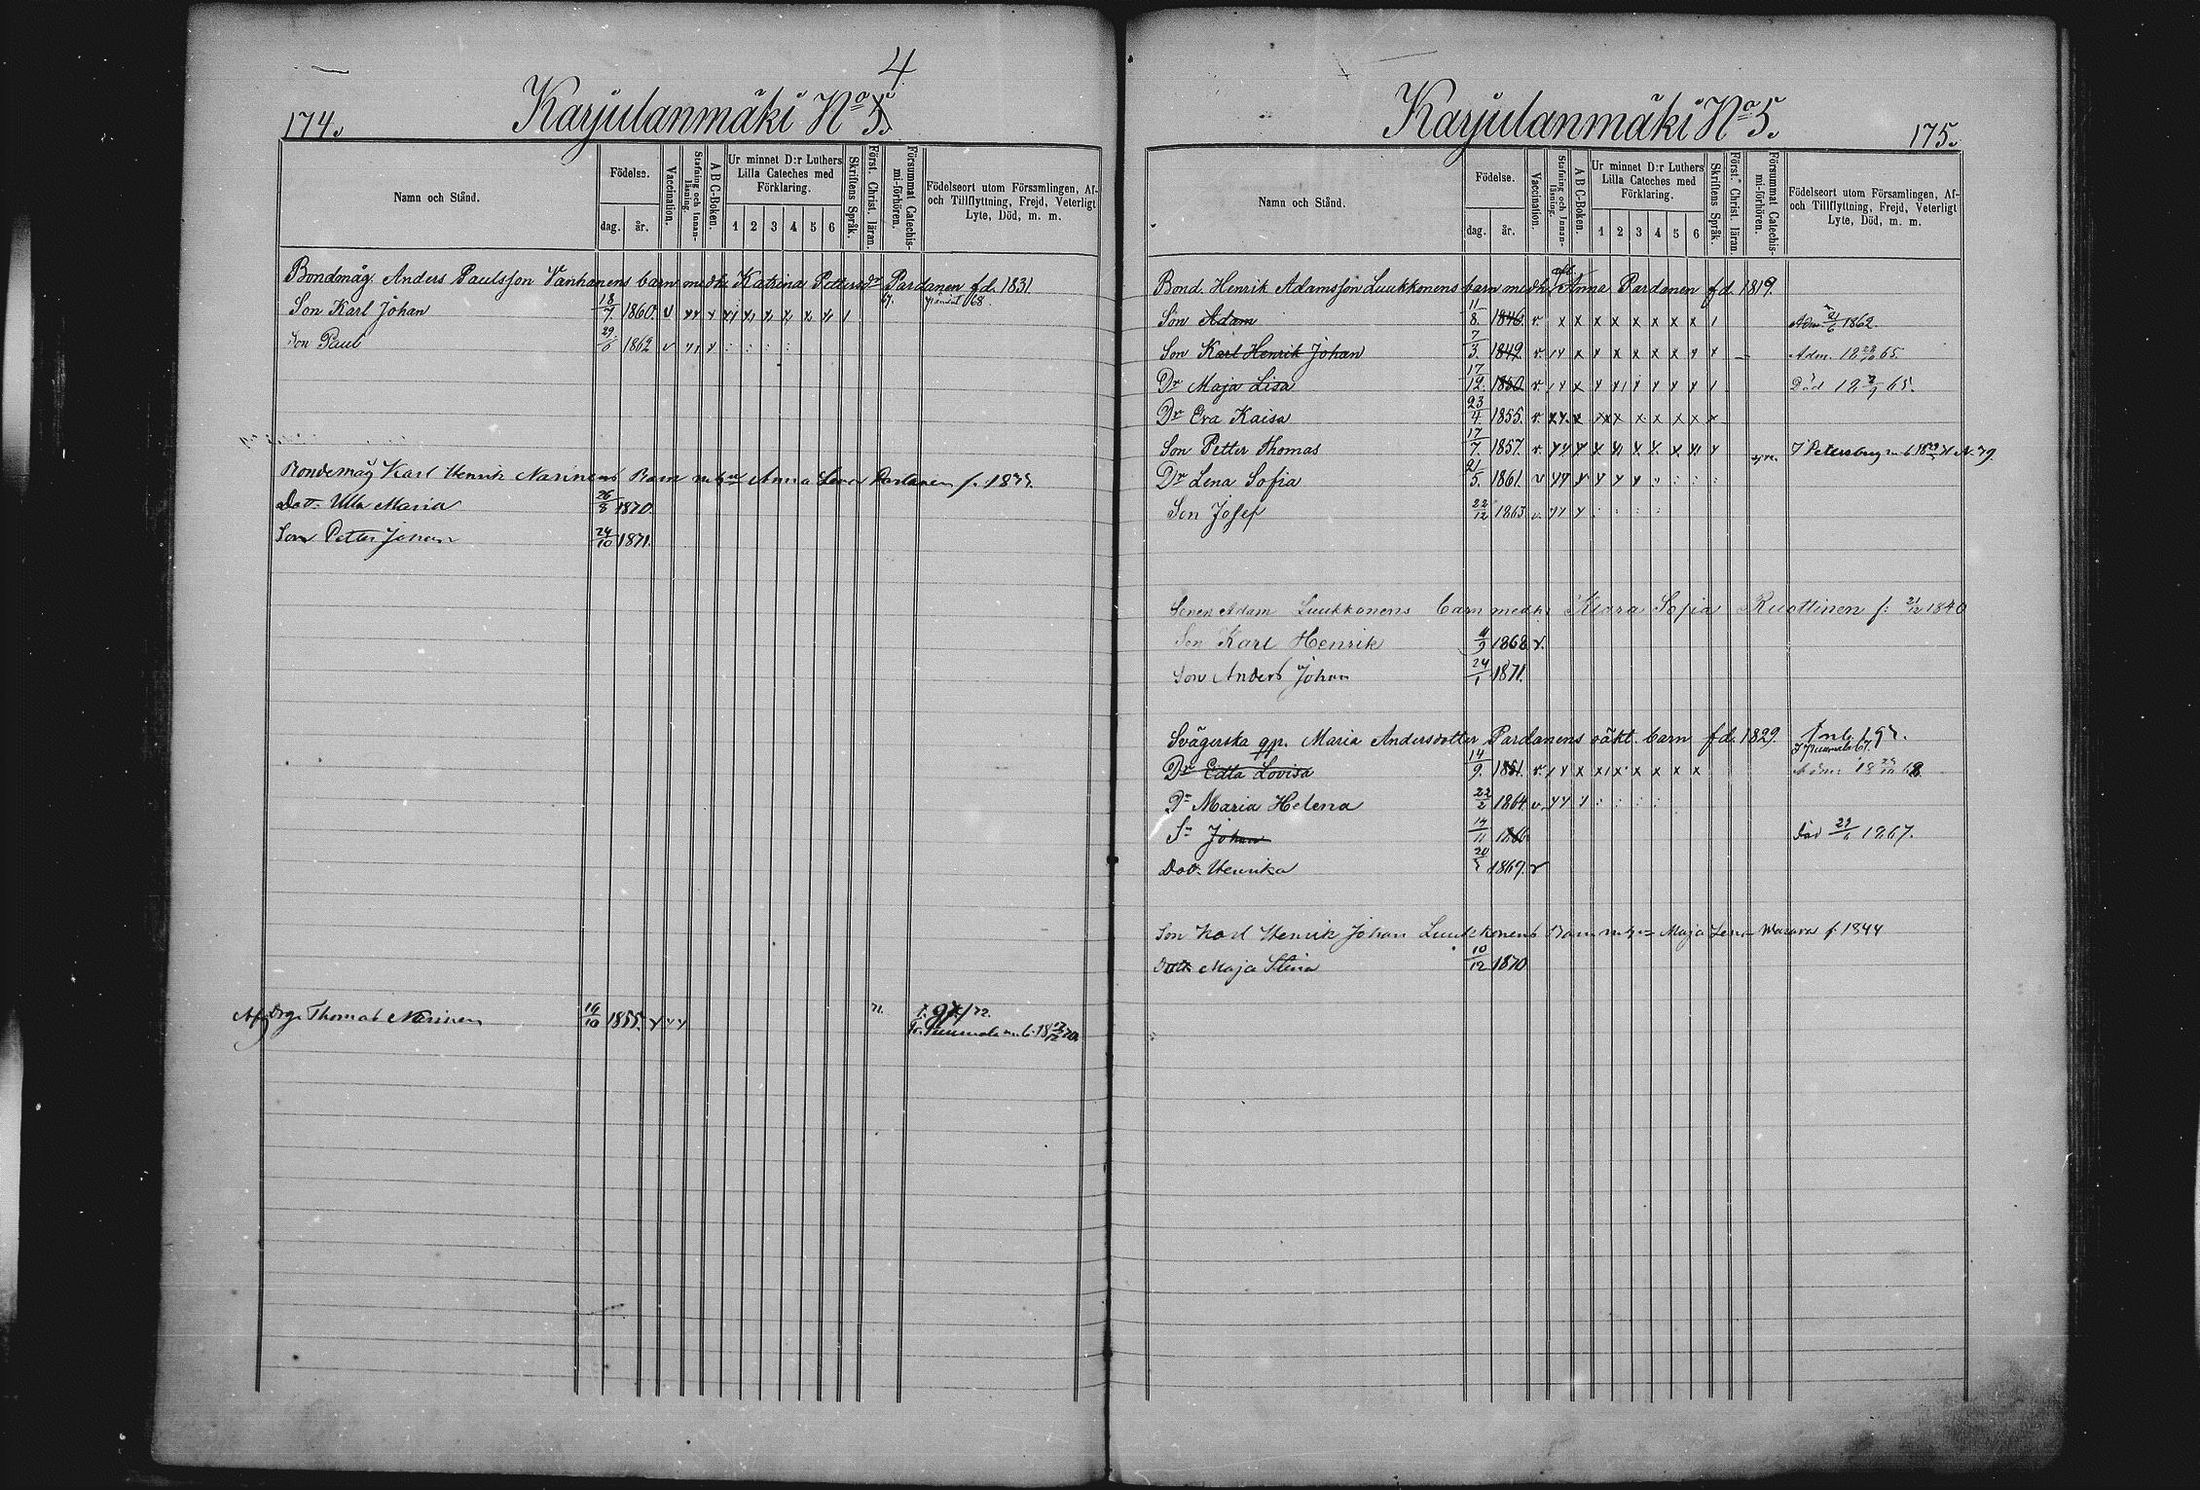 4
174.
Karjulanmäki No 5.
Namn och Stånd.
Födelse.
dag.
år.
Vaccination.
Stafning och Innanläsning.
A B C-Boken.
Ur minnet D:r Luthers
Lilla Cateches med
Förklaring.
1 2 3 4 5 6
Skriftens Språk.
Först. Christ. läran.
Försummat Catechismi-förhören.
Födelseort utom Församlingen, Af-
och Tillflyttning, Frejd, Veterligt
Lyte, Död, m. m.
Bondemåg Anders Paulsson Vanhanens barn medh. Katrina Pettersdr Pardanen fd. 1831
Son Karl Johan 18/7. 1860. v 67. 68.
Son Paul 29/6 1862 v
Bondemåg Karl Henrik Narinens Barn m. h. Anna Lovisa Partanen f.
Dotr. Ulla Maria 26/8 1870.
Son Petter Johan 24/10 1871.
Drg. Thomas Narinen 19/10 1855. 71. 72.
Karjulanmäki No 5.
175.
Namn och Stånd.
Födelse.
dag.
år.
Vaccination.
Stafning och Innanläsning.
A B C-Boken.
Ur minnet D:r Luthers
Lilla Cateches med
Förklaring.
1 2 3 4 5 6
Skriftens Språk.
Först. Christ. läran.
Försummat Catechismi-förhören.
Födelseort utom Församlingen, Af-
och Tillflyttning, Frejd, Veterligt
Lyte, Död, m. m.
Bond. Henrik Adamsson Luukkonens barn medh. afl. Anna Pardanen fd. 1819.
Son Adam 11/8. 1846. v. x x x x x x x x Adm. 21/6 1862.
Son Karl Henrik Johan 7/3. 1849. v. Adm. 18 22/10 65.
Dr Maja Lisa 17/12. 1850. v. Död 18 65.
Dr Eva Kaisa 23/4. 1855. v.
Son Petter Thomas 17/7. 1857. v. Petersburg N. 79.
Dr Lena Sofia 21/5. 1861. v
Son Josef 22/12 1863 v.
Sonen Adam Luukkonens barn medh. Klara Sofia Ruottinen f: 21/12 1840
Son Karl Henrik 11/9 1868 v.
Son Anders Johan 24/1 1871.
Svägerska gp. Maria Andersdotter Pardanens oäkt. barn fd. 1829.
Dr Edla Lovisa 14/9. 1851. v. Adm. 18 68
Dr Maria Helena 22/2 1864 v.
Sn Johan 17/11 1866 Död 29/6 1867.
Dotr. Henrika 20 1869. v
Son Karl Henrik Johan Luukkonens Barn m. h. Maja Lena f 1844
Dotr. Maja Stina 10/12 1870